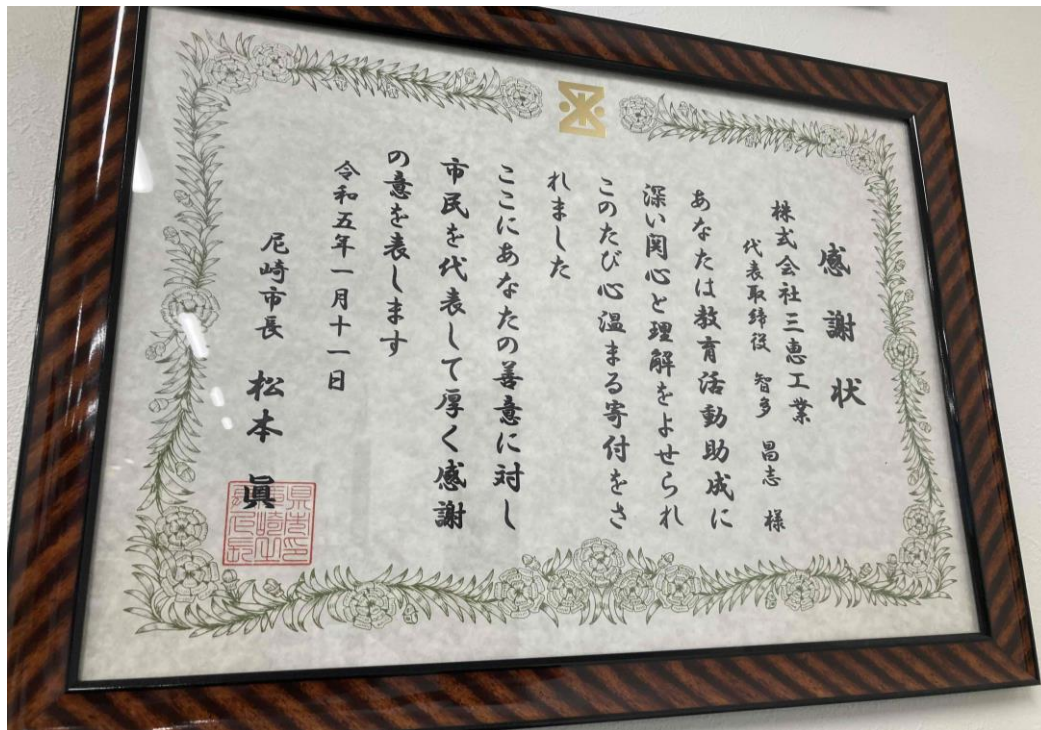 感謝状
株式会社三恵工業
代表取締役 智多 昌志 様
あなたは教育活動助成に
深い関心と理解をよせられ
このたび心温まる寄付をさ
れました
ここにあなたの善意に対し
市民を代表して厚く感謝
の意を表します
令和五年一月十一日
尼崎市長 松本 眞